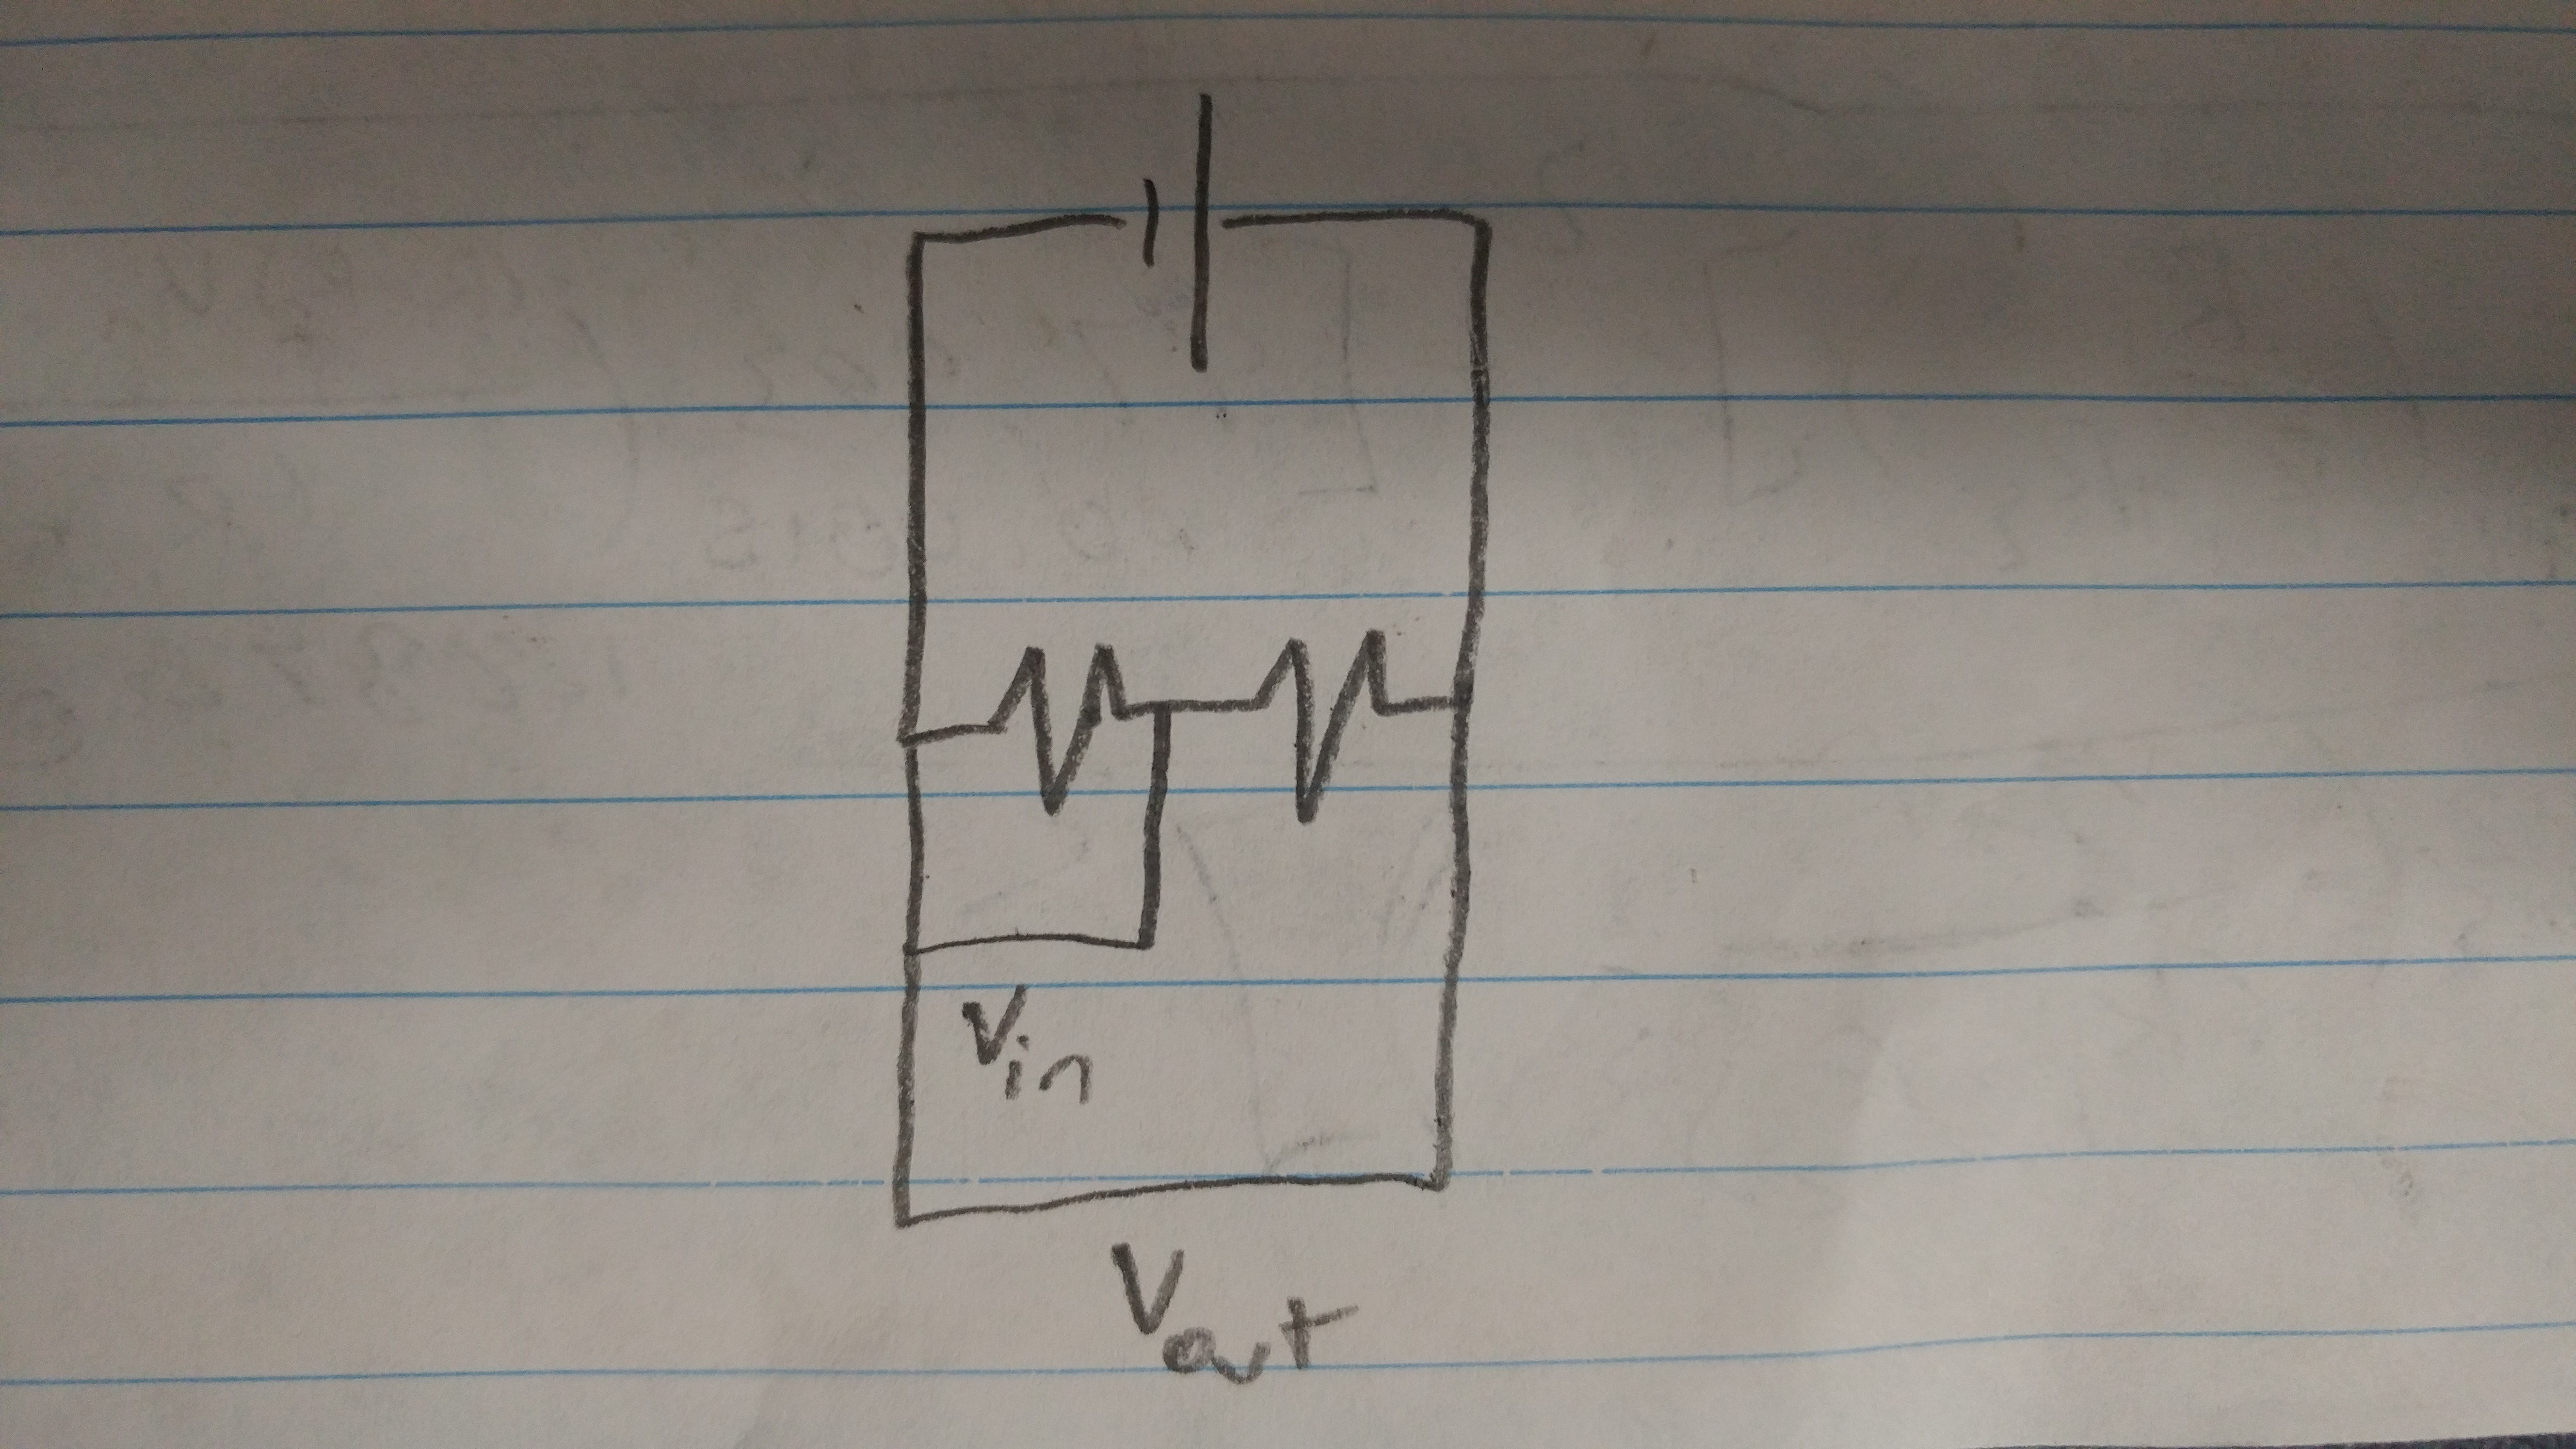 Vin
Vout